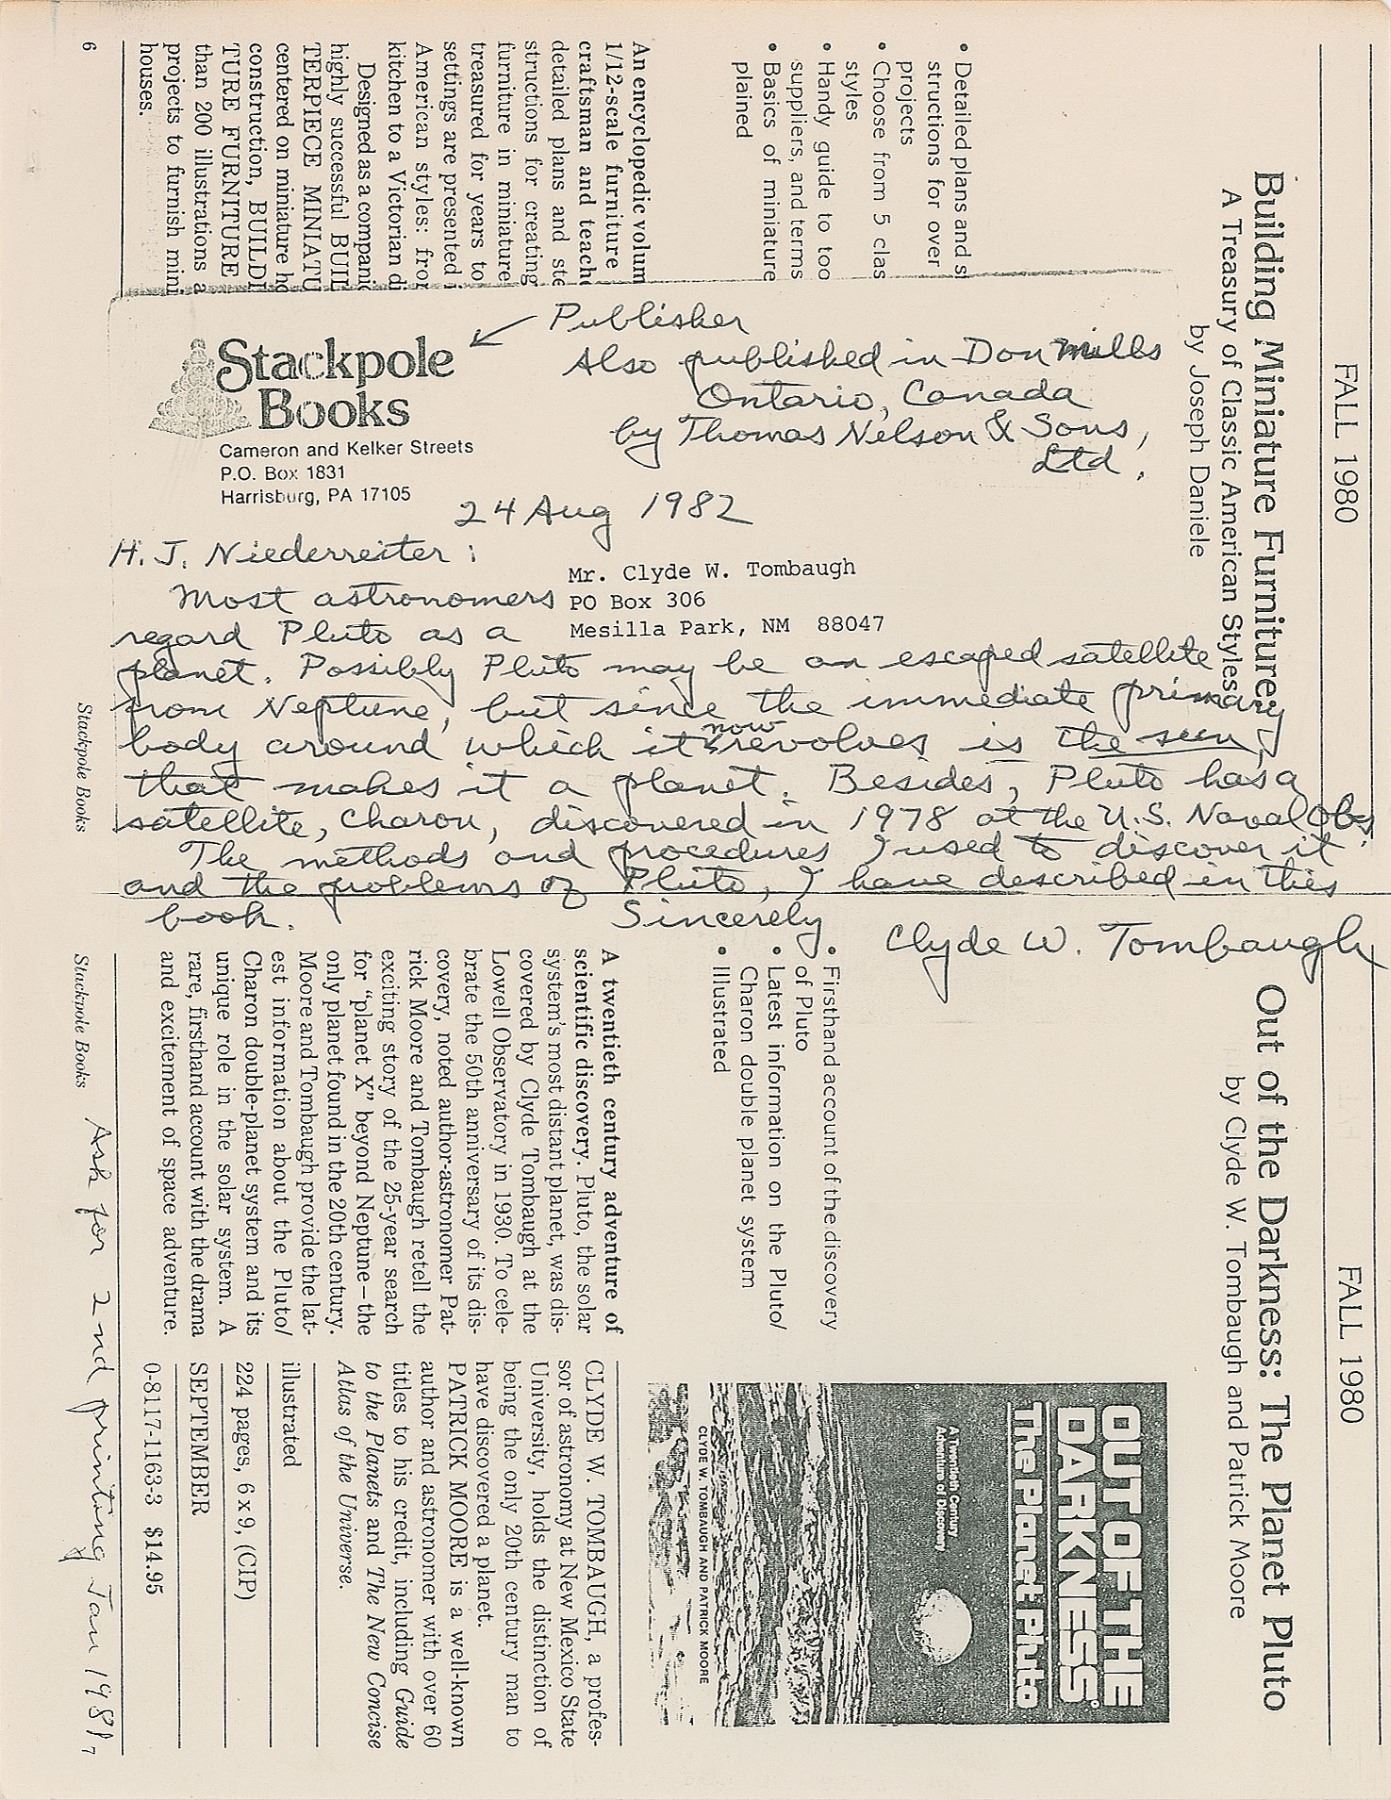 FALL 1980
Building Miniature Furniture
A Treasury of Classic American Styles
by Joseph Daniele
• Detailed plans and s
structions for over
projects
• Choose from 5 clas
styles
• Handy guide to too
suppliers, and terms
• Basics of miniature
plained
An encyclopedic volum
1/12-scale furniture
craftsman and teache
detailed plans and ste
structions for creating
furniture in miniature
treasured for years to
settings are presented i
American styles: fror
kitchen to a Victorian di
Designed as a compani
highly successful BUIL
TERPIECE MINIATU
centered on miniature ho
construction, BUILDI
TURE FURNITURE
than 200 illustrations a
projects to furnish mini
houses.
6
Stackpole Books
Stackpole
Books
Cameron and Kelker Streets
P.O. Box 1831
Harrisburg, PA 17105
Publisher
Also published in Don Mills
Ontario, Canada
by Thomas Nelson & Sons,
Ltd.
24 Aug 1982
Mr. Clyde W. Tombaugh
PO Box 306
Mesilla Park, NM 88047
H. J. Niederreiter:
Most astronomers
regard Pluto as a
planet. Possibly Pluto may be an escaped satellite
from Neptune, but since the immediate primary
body around which it now revolves is the sun,
that makes it a planet. Besides, Pluto has a
satellite, Charon, discovered in 1978 at the U.S. Naval Obs.
The methods and procedures I used to discover it
and the problems of Pluto, I have described in this
book.
Sincerely,
Clyde W. Tombaugh
FALL 1980
Out of the Darkness: The Planet Pluto
by Clyde W. Tombaugh and Patrick Moore
OUT OF THE
DARKNESS:
The Planet Pluto
A Twentieth Century
Adventure of Discovery
CLYDE W. TOMBAUGH AND PATRICK MOORE
• Firsthand account of the discovery
of Pluto
• Latest information on the Pluto/
Charon double planet system
• Illustrated
A twentieth century adventure of
scientific discovery. Pluto, the solar
system's most distant planet, was dis-
covered by Clyde Tombaugh at the
Lowell Observatory in 1930. To cele-
brate the 50th anniversary of its dis-
covery, noted author-astronomer Pat-
rick Moore and Tombaugh retell the
exciting story of the 25-year search
for "planet X" beyond Neptune—the
only planet found in the 20th century.
Moore and Tombaugh provide the lat-
est information about the Pluto/
Charon double-planet system and its
unique role in the solar system. A
rare, firsthand account with the drama
and excitement of space adventure.
CLYDE W. TOMBAUGH, a profes-
sor of astronomy at New Mexico State
University, holds the distinction of
being the only 20th century man to
have discovered a planet.
PATRICK MOORE is a well-known
author and astronomer with over 60
titles to his credit, including Guide
to the Planets and The New Concise
Atlas of the Universe.
illustrated
224 pages, 6 x 9, (CIP)
SEPTEMBER
0-8117-1163-3 $14.95
Stackpole Books
Ask for 2nd printing Jan 1981
7